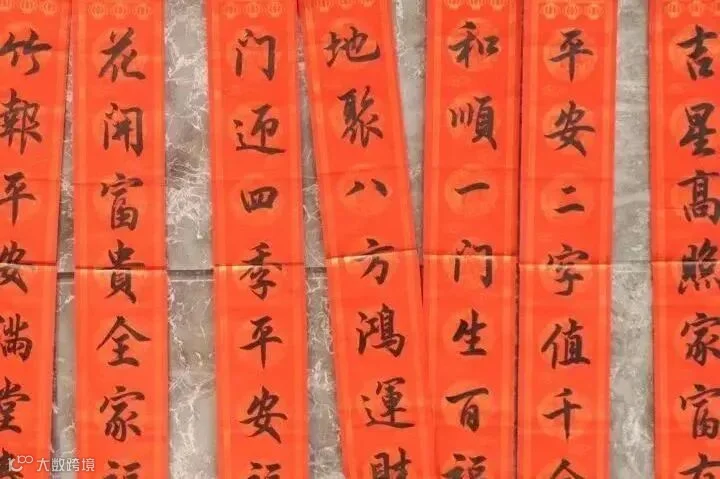 竹報平安滿堂
花開富貴全家福
门迎四季平安福
地聚八方鴻運財
和順一门生百福
平安二字值千金
吉星高照家富有
大数跨境